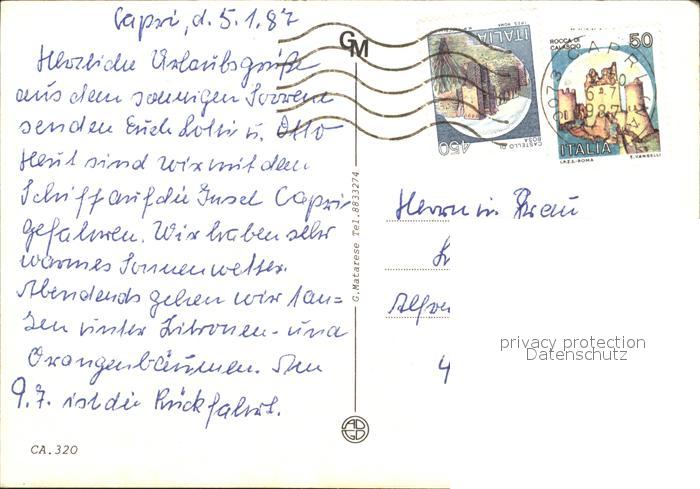 Capri, d. 5.1.87
Herzliche Urlaubsgrüße
aus dem sonnigen Sorrent
senden Euch Lotti u. Otto
Heut sind wir mit dem
Schiff auf die Insel Capri
gefahren. Wir haben sehr
warmes Sonnenwetter.
Abendends gehen wir tan=
zen unter Zitronen- und
Orangenbäumen. Am
9.7. ist die Rückfahrt.
CA.320
GM
G.Matarese Tel.8833274
ITALIA
450
CASTELLO DI
BOSA
ROCCA DI
CALASCIO
50
ITALIA
I.P.Z.S.-ROMA
E. VANGELLI
CAPRI
6.7
1987
Herrn u. Frau
privacy protection
Datenschutz